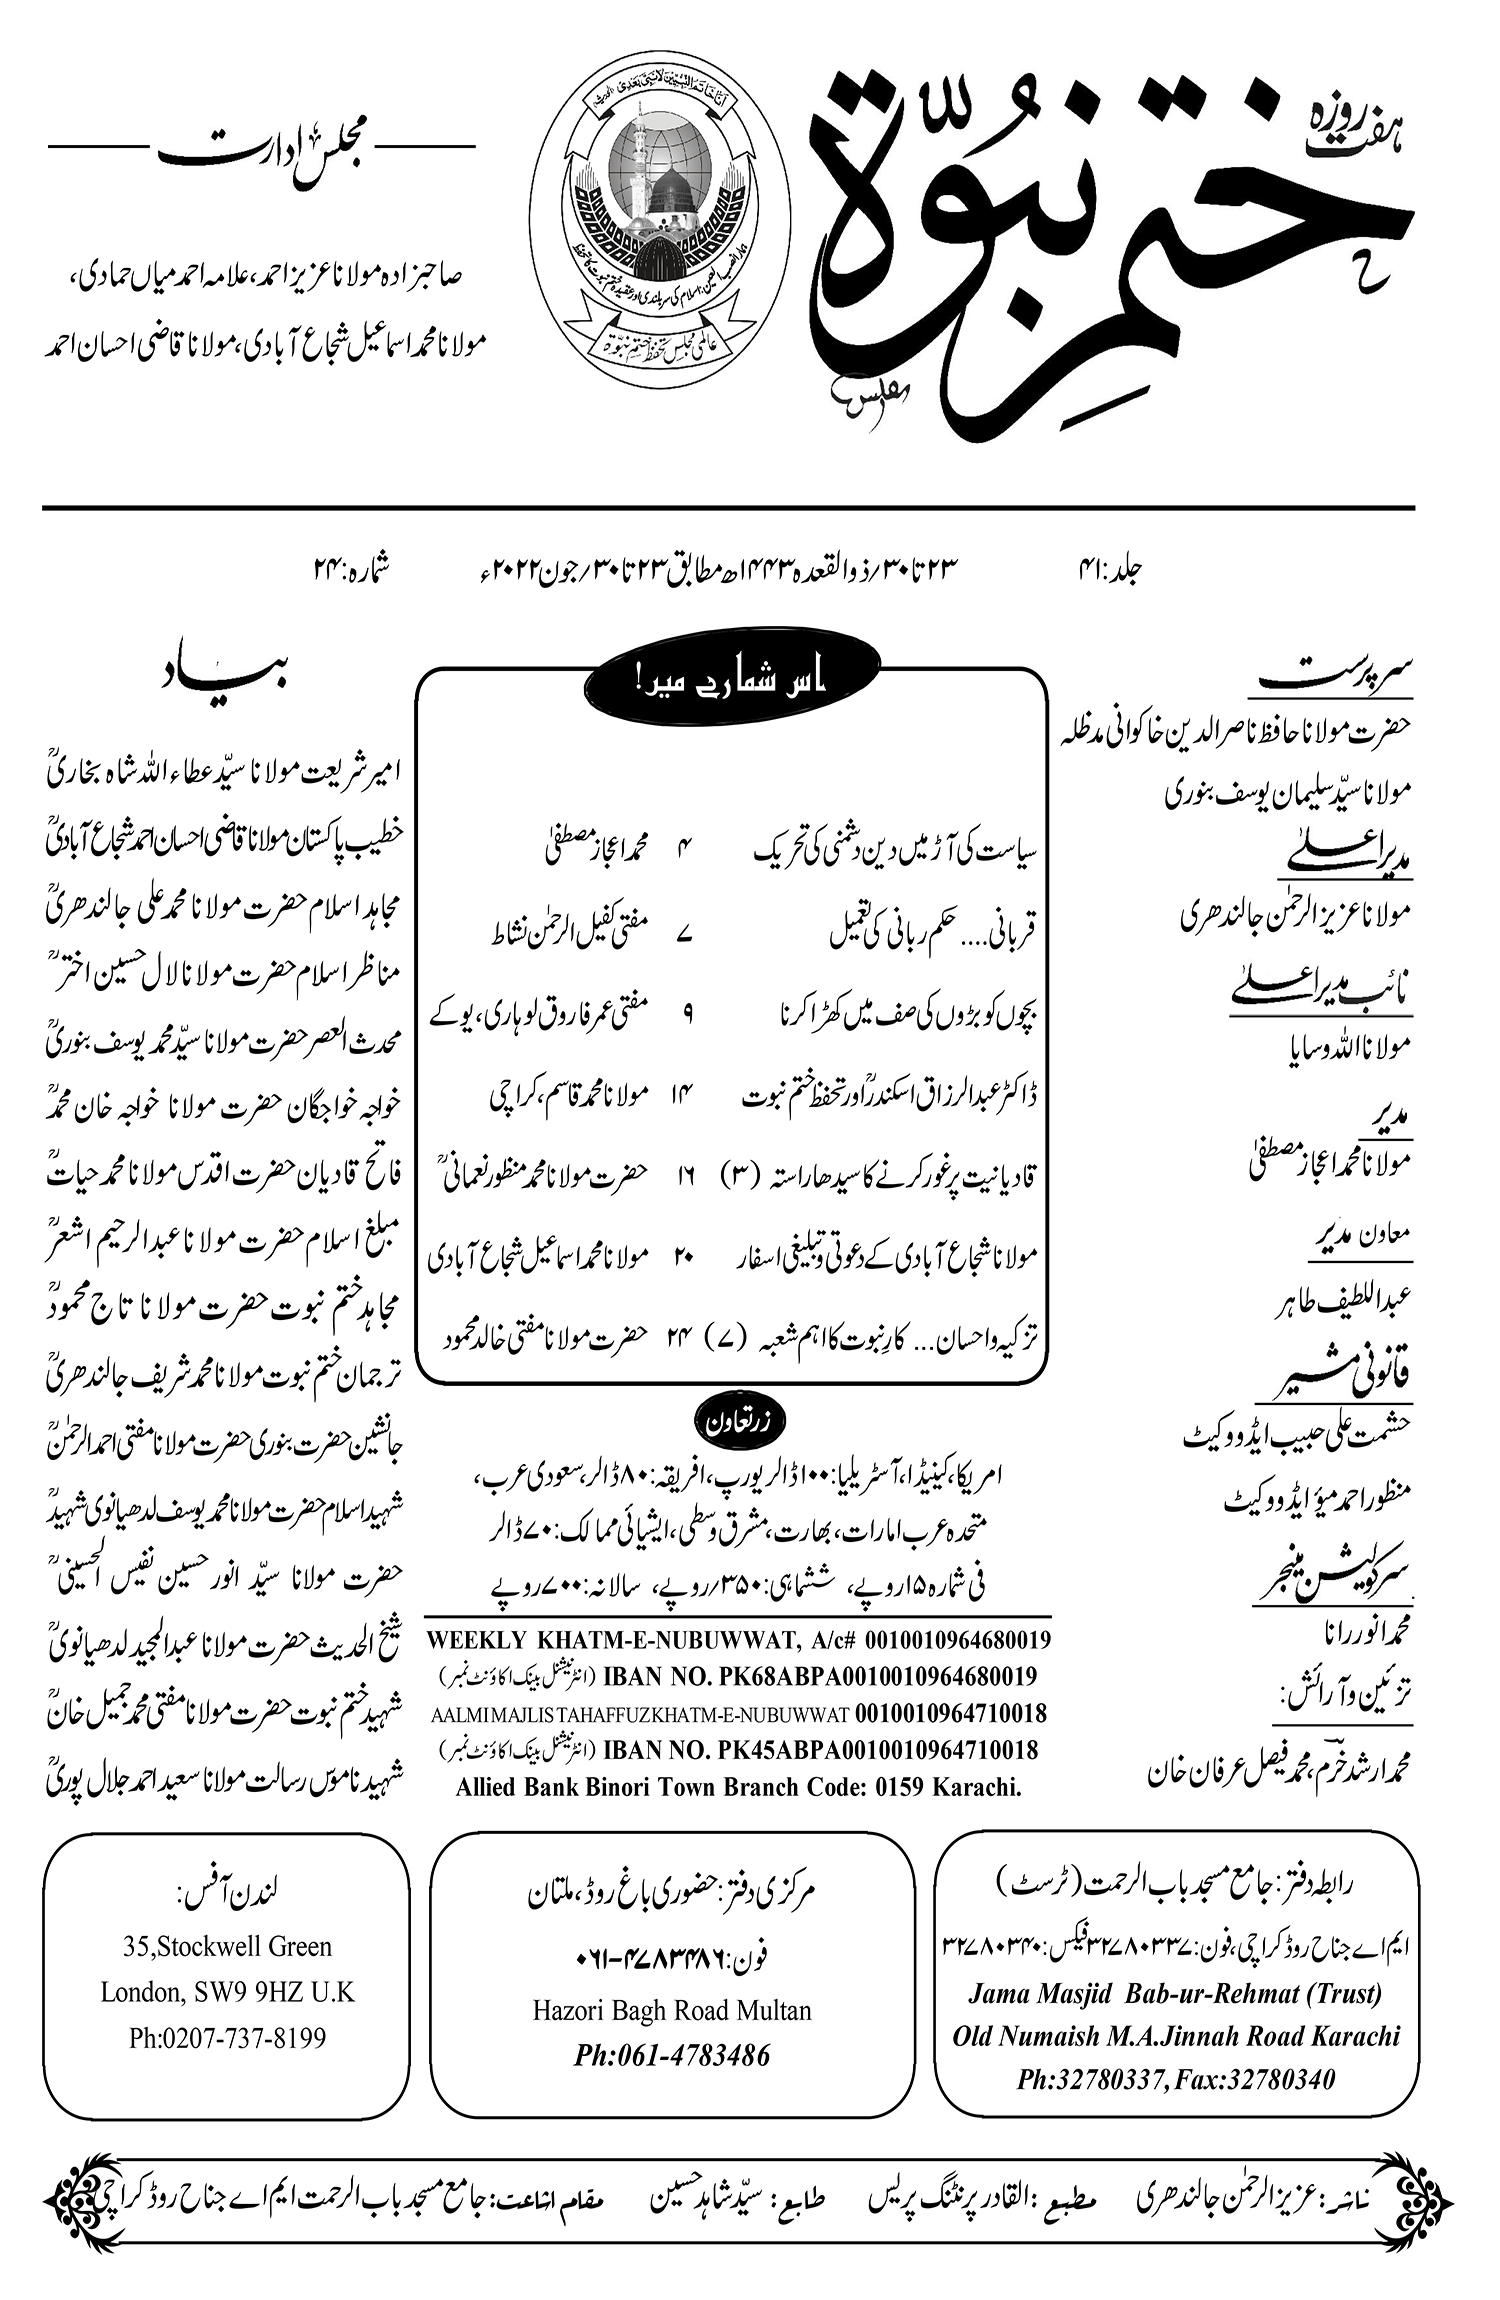 ہفت روزہ
ختم نبوّۃ
انا خاتم النبیین لا نبی بعدی
عالمی مجلس تحفظ ختم نبوّۃ
مجلس ادارت
صاحبزادہ مولانا عزیز احمد، علامہ احمد میاں حمادی،
مولانا محمد اسماعیل شجاع آبادی، مولانا قاضی احسان احمد
جلد: ۴۱ ۲۳ تا ۳۰/ذوالقعدہ ۱۴۴۳ھ مطابق ۲۳ تا ۳۰/جون ۲۰۲۲ء شمارہ: ۲۴
سرپرست
حضرت مولانا حافظ ناصر الدین خاکوانی مدظلہ
مولانا سیّد سلیمان یوسف بنوری
مدیر اعلیٰ
مولانا عزیز الرحمٰن جالندھری
نائب مدیر اعلیٰ
مولانا اللہ وسایا
مدیر
مولانا محمد اعجاز مصطفیٰ
معاون مدیر
عبداللطیف طاہر
قانونی مشیر
حشمت علی حبیب ایڈووکیٹ
منظور احمد میؤ ایڈووکیٹ
سرکولیشن مینجر
محمد انور رانا
تزئین و آرائش:
محمد ارشد خرم، محمد فیصل عرفان خان
اس شمارے میں!
سیاست کی آڑ میں دین دشمنی کی تحریک ۴ محمد اعجاز مصطفیٰ
قربانی.... حکم ربانی کی تعمیل ۷ مفتی کفیل الرحمٰن نشاط
بچوں کو بڑوں کی صف میں کھڑا کرنا ۹ مفتی عمر فاروق لوہاری، یوکے
ڈاکٹر عبدالرزاق اسکندرؒ اور تحفظ ختم نبوت ۱۴ مولانا محمد قاسم، کراچی
قادیانیت پر غور کرنے کا سیدھا راستہ (۳) ۱۶ حضرت مولانا محمد منظور نعمانیؒ
مولانا شجاع آبادی کے دعوتی و تبلیغی اسفار ۲۰ مولانا محمد اسماعیل شجاع آبادی
تزکیہ و احسان... کارِ نبوت کا اہم شعبہ (۷) ۲۴ حضرت مولانا مفتی خالد محمود
زرتعاون
امریکا، کینیڈا، آسٹریلیا: ۱۰۰ ڈالر یورپ، افریقہ: ۸۰ ڈالر، سعودی عرب،
متحدہ عرب امارات، بھارت، مشرق وسطی، ایشیائی ممالک: ۷۰ ڈالر
فی شمارہ ۱۵ روپے، ششماہی: ۳۵۰/روپے، سالانہ: ۷۰۰ روپے
WEEKLY KHATM-E-NUBUWWAT, A/c# 0010010964680019
IBAN NO. PK68ABPA0010010964680019 (انٹرنیشنل بینک اکاؤنٹ نمبر)
AALMI MAJLIS TAHAFFUZ KHATM-E-NUBUWWAT 0010010964710018
IBAN NO. PK45ABPA0010010964710018 (انٹرنیشنل بینک اکاؤنٹ نمبر)
Allied Bank Binori Town Branch Code: 0159 Karachi.
بیاد
امیر شریعت مولانا سیّد عطاء اللہ شاہ بخاریؒ
خطیب پاکستان مولانا قاضی احسان احمد شجاع آبادیؒ
مجاہد اسلام حضرت مولانا محمد علی جالندھریؒ
مناظر اسلام حضرت مولانا لال حسین اخترؒ
محدث العصر حضرت مولانا سیّد محمد یوسف بنوریؒ
خواجہ خواجگان حضرت مولانا خواجہ خان محمدؒ
فاتح قادیان حضرت اقدس مولانا محمد حیاتؒ
مبلغ اسلام حضرت مولانا عبدالرحیم اشعرؒ
مجاہد ختم نبوت حضرت مولانا تاج محمودؒ
ترجمان ختم نبوت مولانا محمد شریف جالندھریؒ
جانشین حضرت بنوری حضرت مولانا مفتی احمد الرحمٰنؒ
شہید اسلام حضرت مولانا محمد یوسف لدھیانوی شہیدؒ
حضرت مولانا سیّد انور حسین نفیس الحسینیؒ
شیخ الحدیث حضرت مولانا عبدالمجید لدھیانویؒ
شہید ختم نبوت حضرت مولانا مفتی محمد جمیل خانؒ
شہید ناموس رسالت مولانا سعید احمد جلال پوریؒ
رابطہ دفتر: جامع مسجد باب الرحمت (ٹرسٹ)
ایم اے جناح روڈ کراچی، فون: ۳۲۷۸۰۳۳۷ فیکس: ۳۲۷۸۰۳۴۰
Jama Masjid Bab-ur-Rehmat (Trust)
Old Numaish M.A.Jinnah Road Karachi
Ph:32780337, Fax:32780340
مرکزی دفتر: حضوری باغ روڈ، ملتان
فون: ۴۷۸۳۴۸۶-۰۶۱
Hazori Bagh Road Multan
Ph:061-4783486
لندن آفس:
35,Stockwell Green
London, SW9 9HZ U.K
Ph:0207-737-8199
ناشر: عزیز الرحمٰن جالندھری مطبع: القادر پرنٹنگ پریس طابع: سیّد شاہد حسین مقام اشاعت: جامع مسجد باب الرحمت ایم اے جناح روڈ کراچی